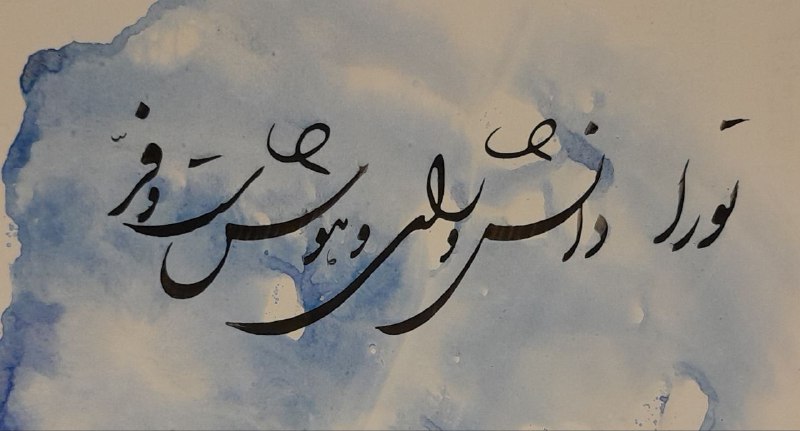 تورا دانش و رای و هوش ست و فرّ